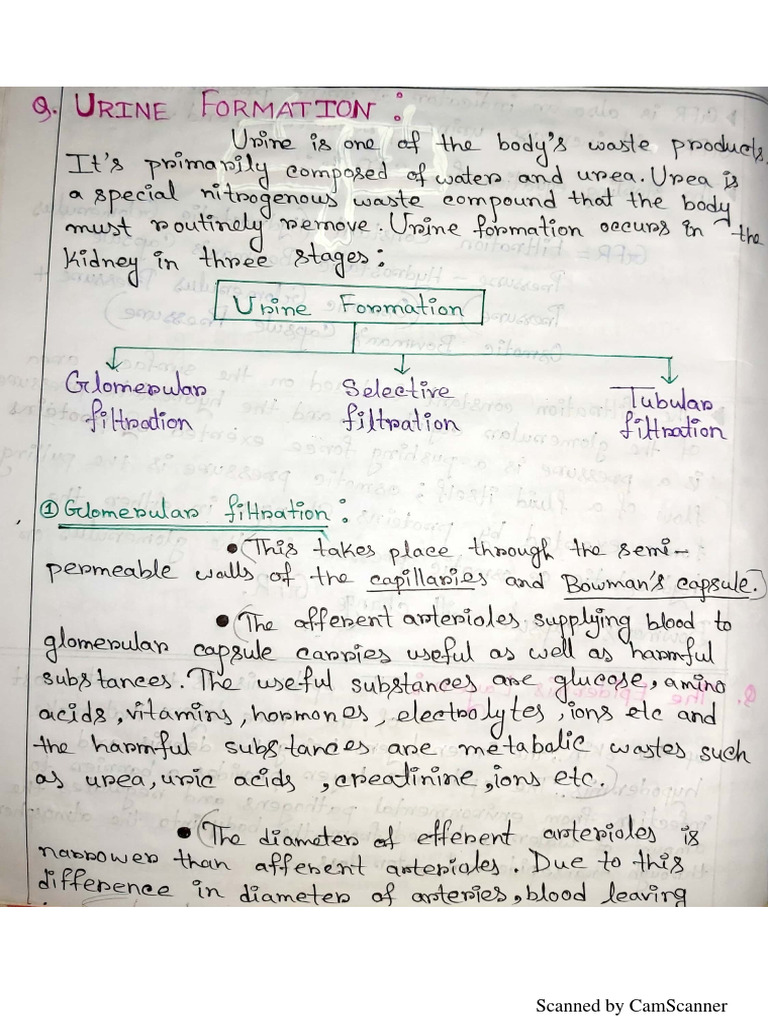 Q. URINE FORMATION :
Urine is one of the body's waste products.
It's primarily composed of water and urea. Urea is
a special nitrogenous waste compound that the body
must routinely remove. Urine formation occurs in the
kidney in three stages:
Urine Formation
Glomerular filtration
Selective filtration
Tubular filtration
① Glomerular filtration :
• This takes place through the semi-
permeable walls of the capillaries and Bowman's capsule.
• The afferent arterioles supplying blood to
glomerular capsule carries useful as well as harmful
substances. The useful substances are glucose, amino
acids, vitamins, hormones, electrolytes, ions etc and
the harmful substances are metabolic wastes such
as urea, uric acids, creatinine, ions etc.
• The diameter of efferent arterioles is
narrower than afferent arterioles. Due to this
difference in diameter of arteries, blood leaving
Scanned by CamScanner